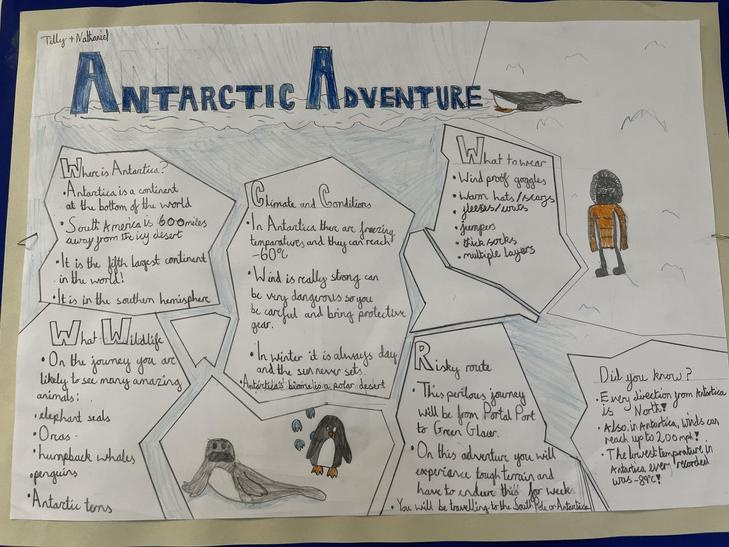 Tilly + Nathaniel
ANTARCTIC ADVENTURE
Where is Antarctica?
• Antarctica is a continent
at the bottom of the world
• South America is 600 miles
away from the icy desert
• It is the fifth largest continent
in the world!
• It is in the southern hemisphere
What Wildlife
• On the journey you are
likely to see many amazing
animals:
• elephant seals
• Orcas
• humpback whales
• penguins
• Antarctic terns
Climate and Conditions
• In Antarctica there are freezing
temperatures and they can reach
-60°C
• Wind is really strong can
be very dangerous so you
be careful and bring protective
gear.
• In winter it is always day
and the sun never sets.
• Antarctica's biome is a polar desert
What to wear
• Wind proof goggles
• Warm hats/scarfs
• jumpers
• thick socks
• multiple layers
Risky route
• This perilous journey
will be from Portal Port
to Green Glaer.
• On this adventure you will
experience tough terrain and
have to endure this for week.
• You will be travelling to the South Pole or Antarctica
Did you know?
• Every direction from Antartica
is North!
• Also, in Antartica, winds can
reach up to 200 mph!
• The lowest temperature in
Antartica ever recorded
was -89°C!